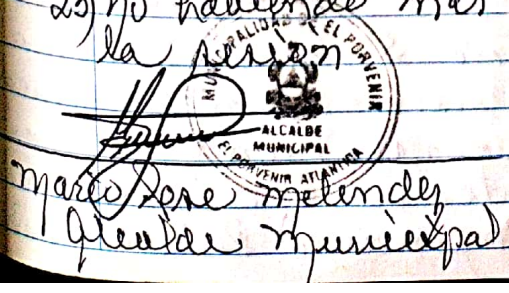 25) no habiendo mas
la sesion
MUNICIPALIDAD DE EL PORVENIR
ALCALDE
MUNICIPAL
EL PORVENIR ATLANTIDA
Mario Jose Melendez
Alcalde Municipal